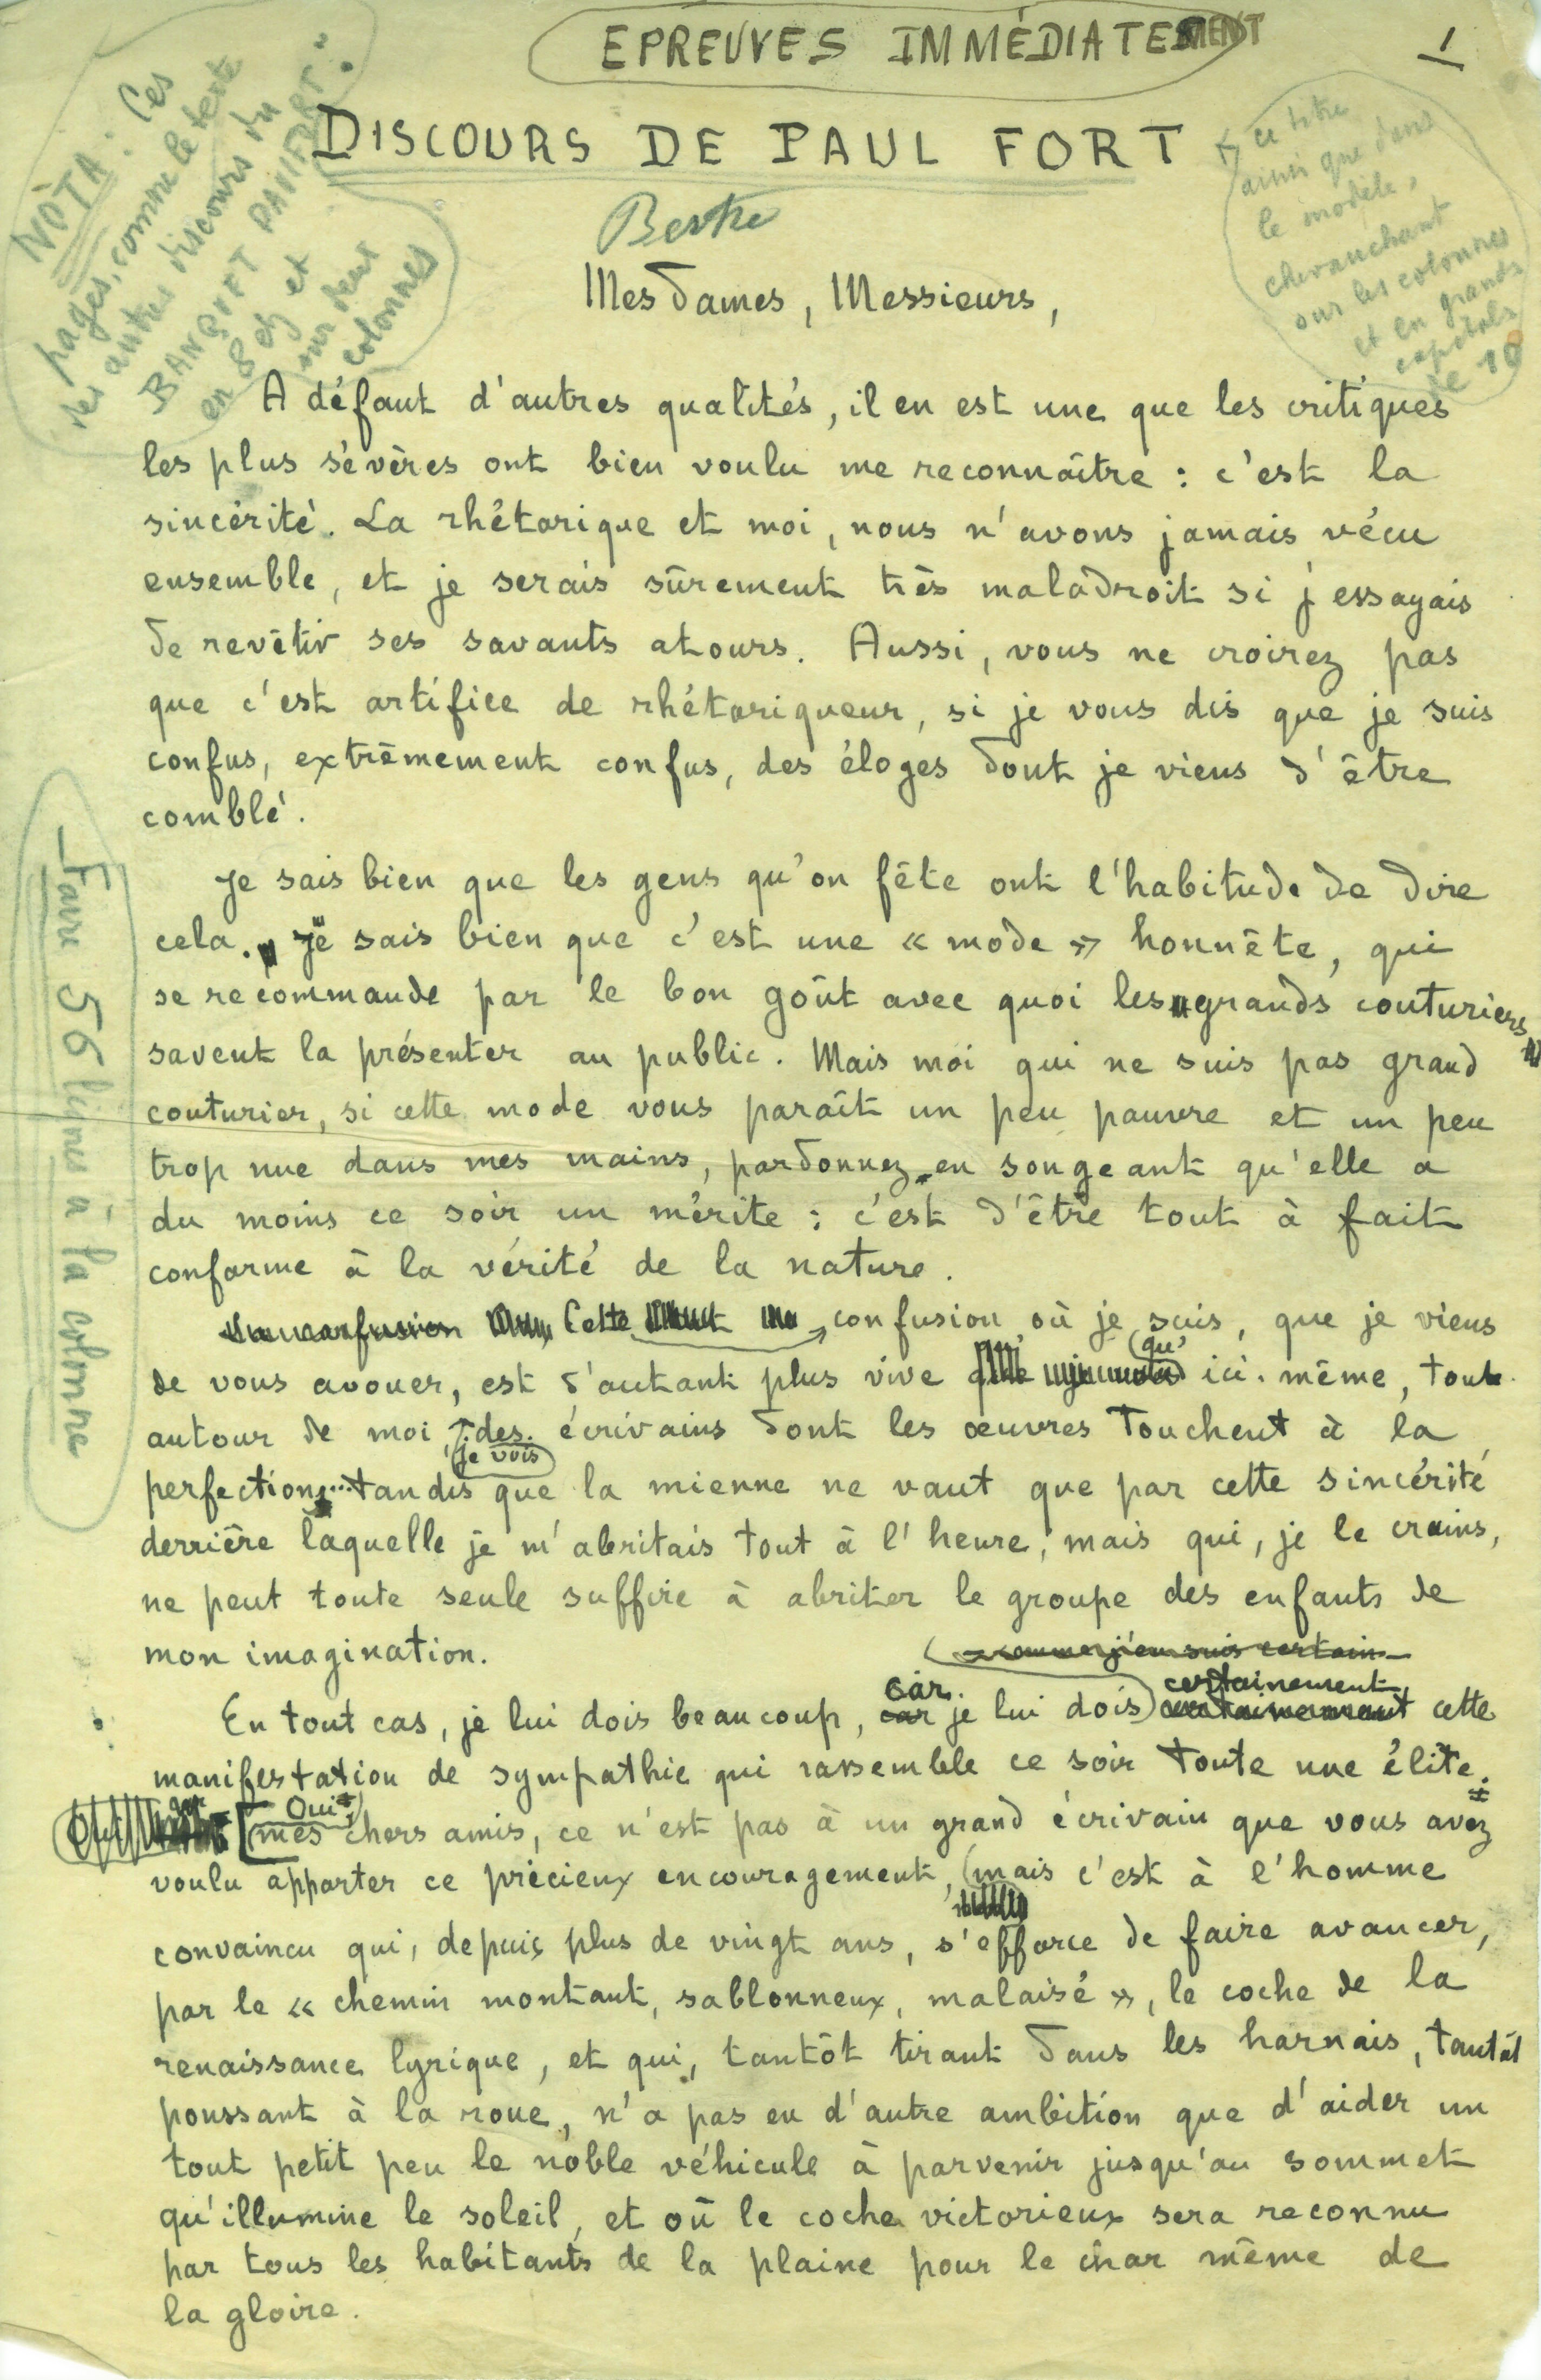 EPREUVES IMMÉDIATEMENT
1
NOTA : Ces
pages, comme le texte
des autres discours du
BANQUET PAUL FORT
en 8 et
sur deux
colonnes
DISCOURS DE PAUL FORT
ce titre
ainsi que dans
le modèle,
chevauchant
sur les colonnes
et en grandes
capitales
de 10
Mesdames, Messieurs,
A défaut d'autres qualités, il en est une que les critiques
les plus sévères ont bien voulu me reconnaître : c'est la
sincérité. La rhétorique et moi, nous n'avons jamais vécu
ensemble, et je serais sûrement très maladroit si j'essayais
de revêtir ses savants atours. Aussi, vous ne croirez pas
que c'est artifice de rhétoriqueur, si je vous dis que je suis
confus, extrêmement confus, des éloges dont je viens d'être
comblé.
Je sais bien que les gens qu'on fête ont l'habitude de dire
cela. Je sais bien que c'est une « mode » honnête, qui
se recommande par le bon goût avec quoi les grands couturiers
savent la présenter au public. Mais moi qui ne suis pas grand
couturier, si cette mode vous paraît un peu pauvre et un peu
trop nue dans mes mains, pardonnez en songeant qu'elle a
du moins ce soir un mérite : c'est d'être tout à fait
conforme à la vérité de la nature.
Cette confusion où je suis, que je viens
de vous avouer, est d'autant plus vive qu' ici-même, tout
autour de moi, je vois des écrivains dont les œuvres touchent à la
perfection... tandis que la mienne ne vaut que par cette sincérité
derrière laquelle je m'abritais tout à l'heure, mais qui, je le crains,
ne peut toute seule suffire à abriter le groupe des enfants de
mon imagination.
comme j'en suis certain
En tout cas, je lui dois beaucoup, car je lui dois certainement cette
manifestation de sympathie qui rassemble ce soir toute une élite.
Oui, mes chers amis, ce n'est pas à un grand écrivain que vous avez
voulu apporter ce précieux encouragement, mais c'est à l'homme
convaincu qui, depuis plus de vingt ans, s'efforce de faire avancer,
par le « chemin montant, sablonneux, malaisé », le coche de la
renaissance lyrique, et qui, tantôt tirant dans les harnais, tantôt
poussant à la roue, n'a pas eu d'autre ambition que d'aider un
tout petit peu le noble véhicule à parvenir jusqu'au sommet
qu'illumine le soleil, et où le coche victorieux sera reconnu
par tous les habitants de la plaine pour le char même de
la gloire.
Faire 56 lignes à la colonne